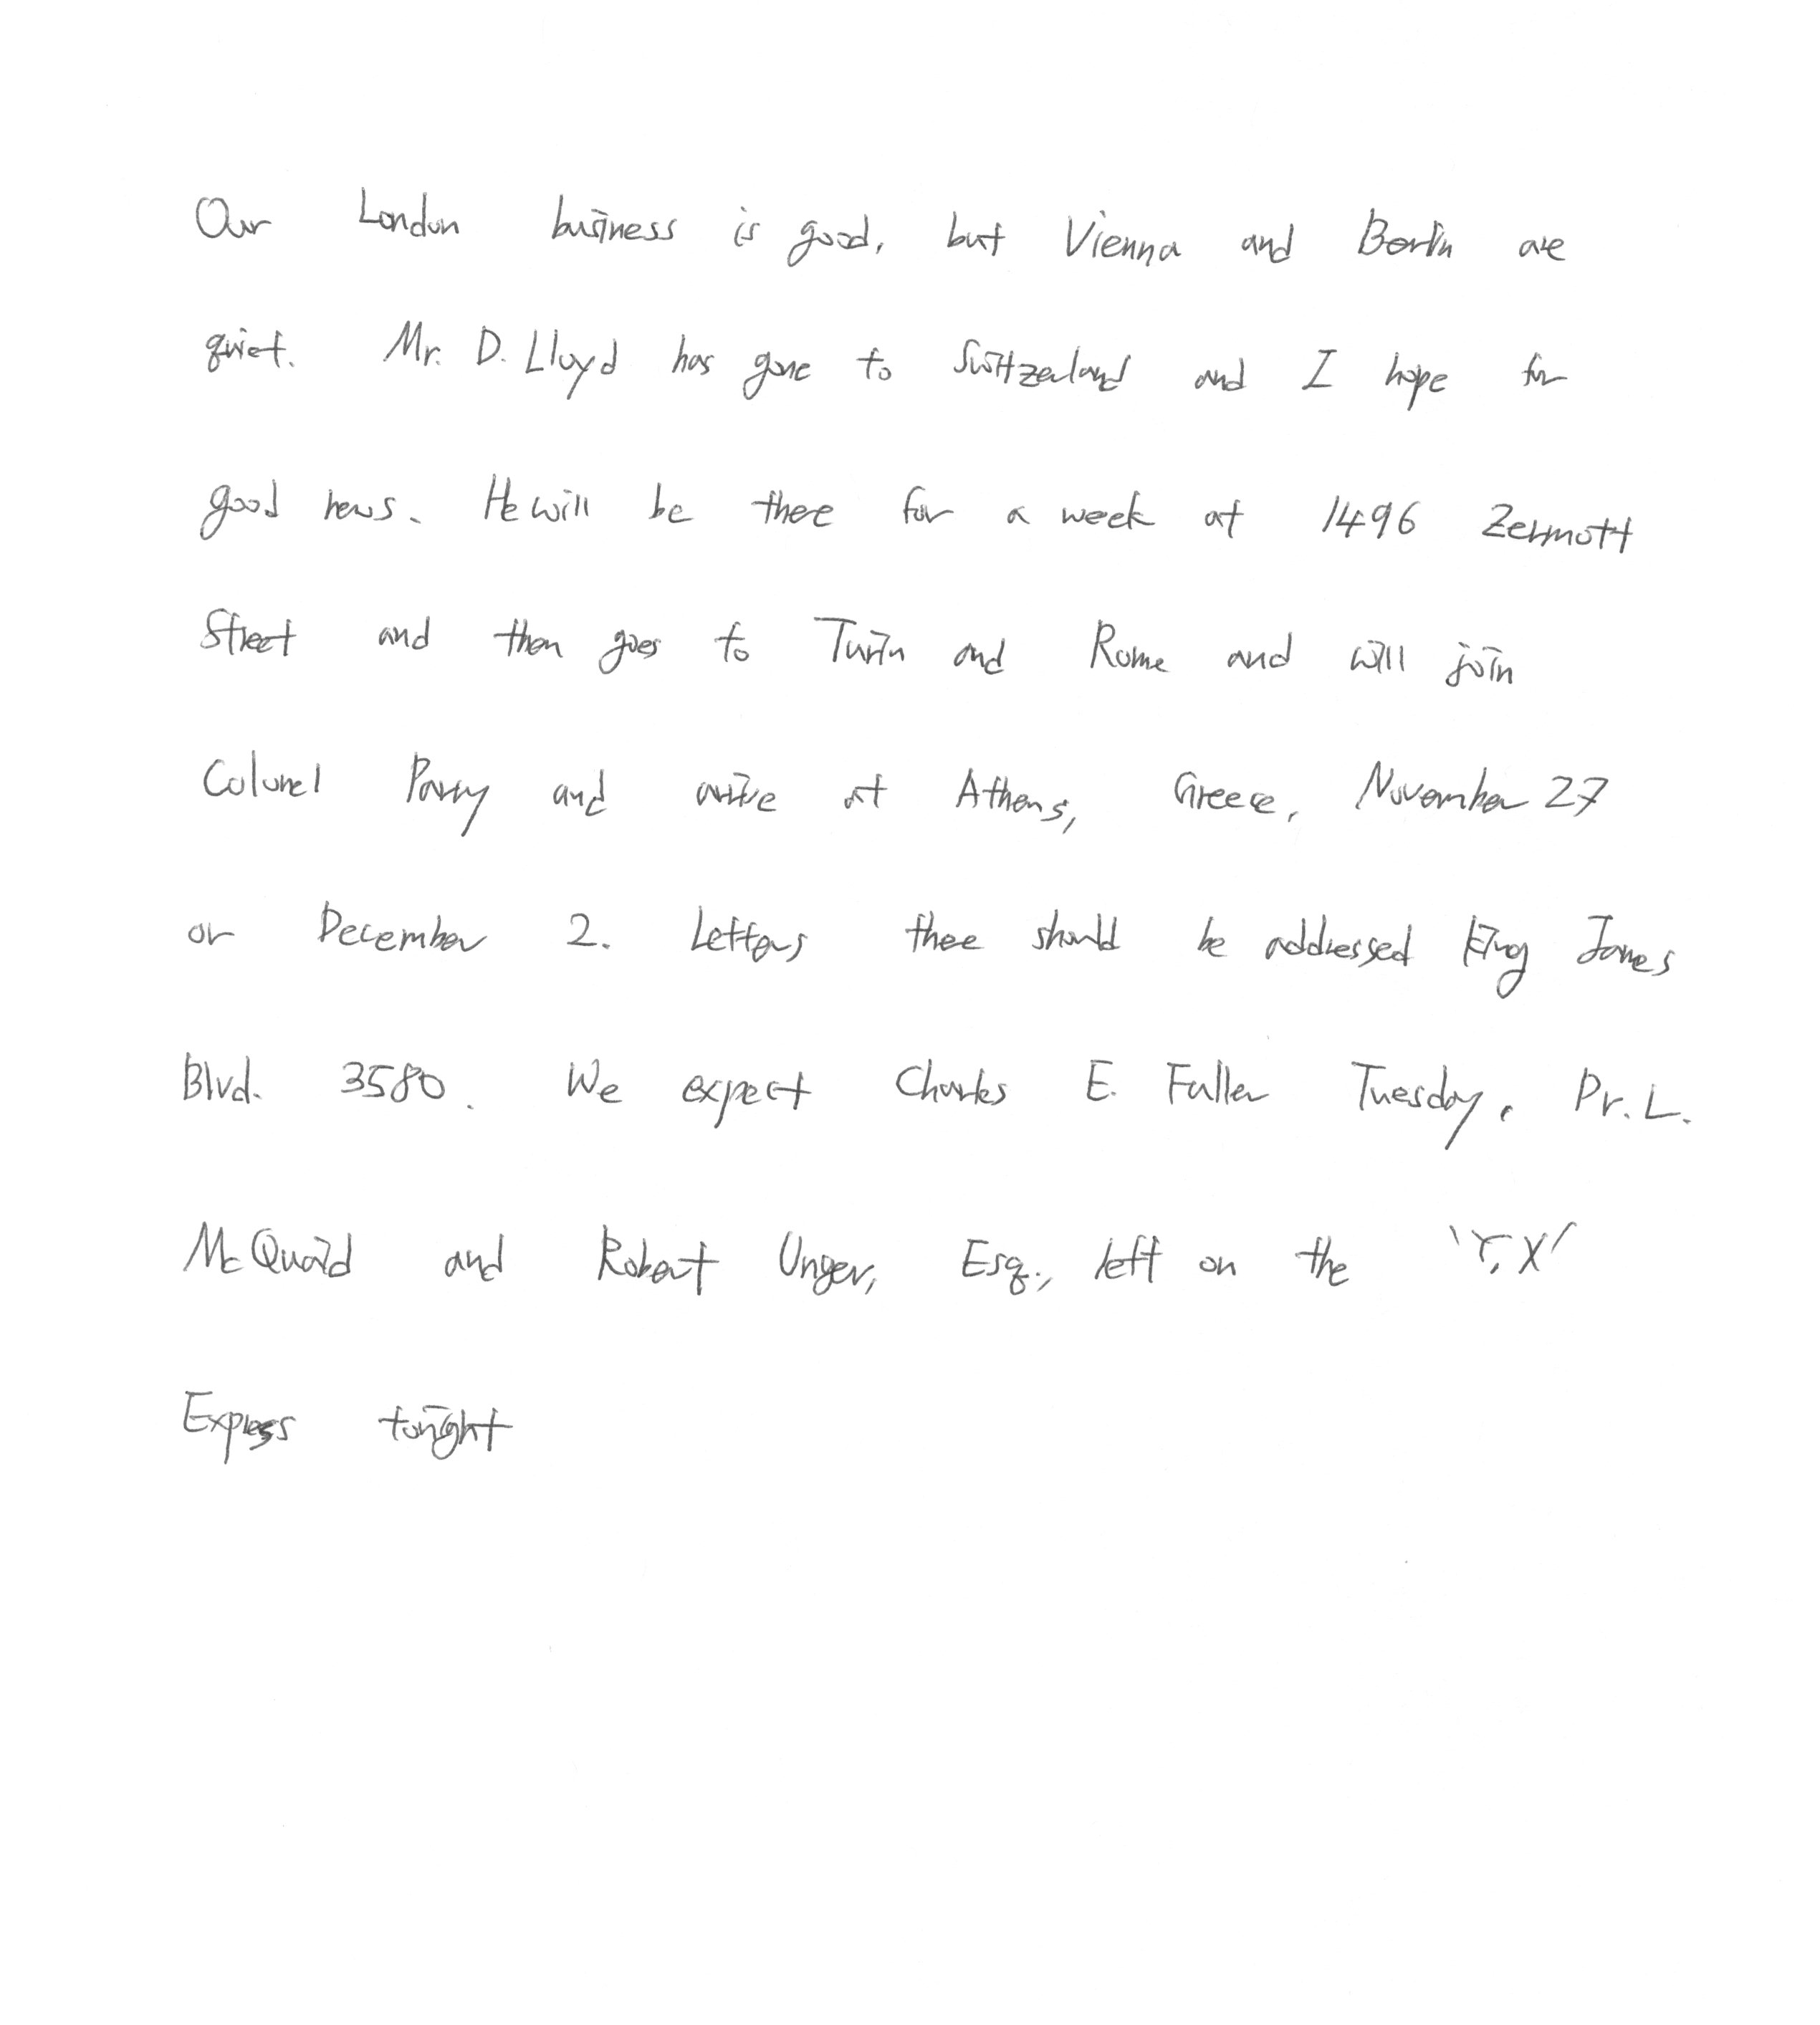 Our London business is good, but Vienna and Berlin are
quiet. Mr. D. Lloyd has gone to Switzerland and I hope for
good news. He will be there for a week at 1496 Zermott
Street and then goes to Turin and Rome and will join
Colonel Parry and arrive at Athens, Greece, November 27
or December 2. Letters there should be addressed King James
Blvd. 3580. We expect Charles E. Fuller Tuesday. Dr. L.
McQuaid and Robert Unger, Esq., left on the 'Y, X'
Express tonight